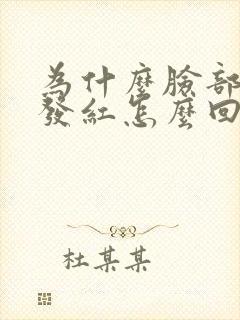 為什麼臉部
發紅怎麼回
杜某某